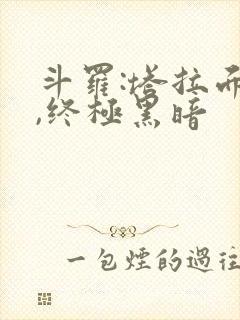 斗羅:塔拉而
,終極黑暗
一包煙的過往